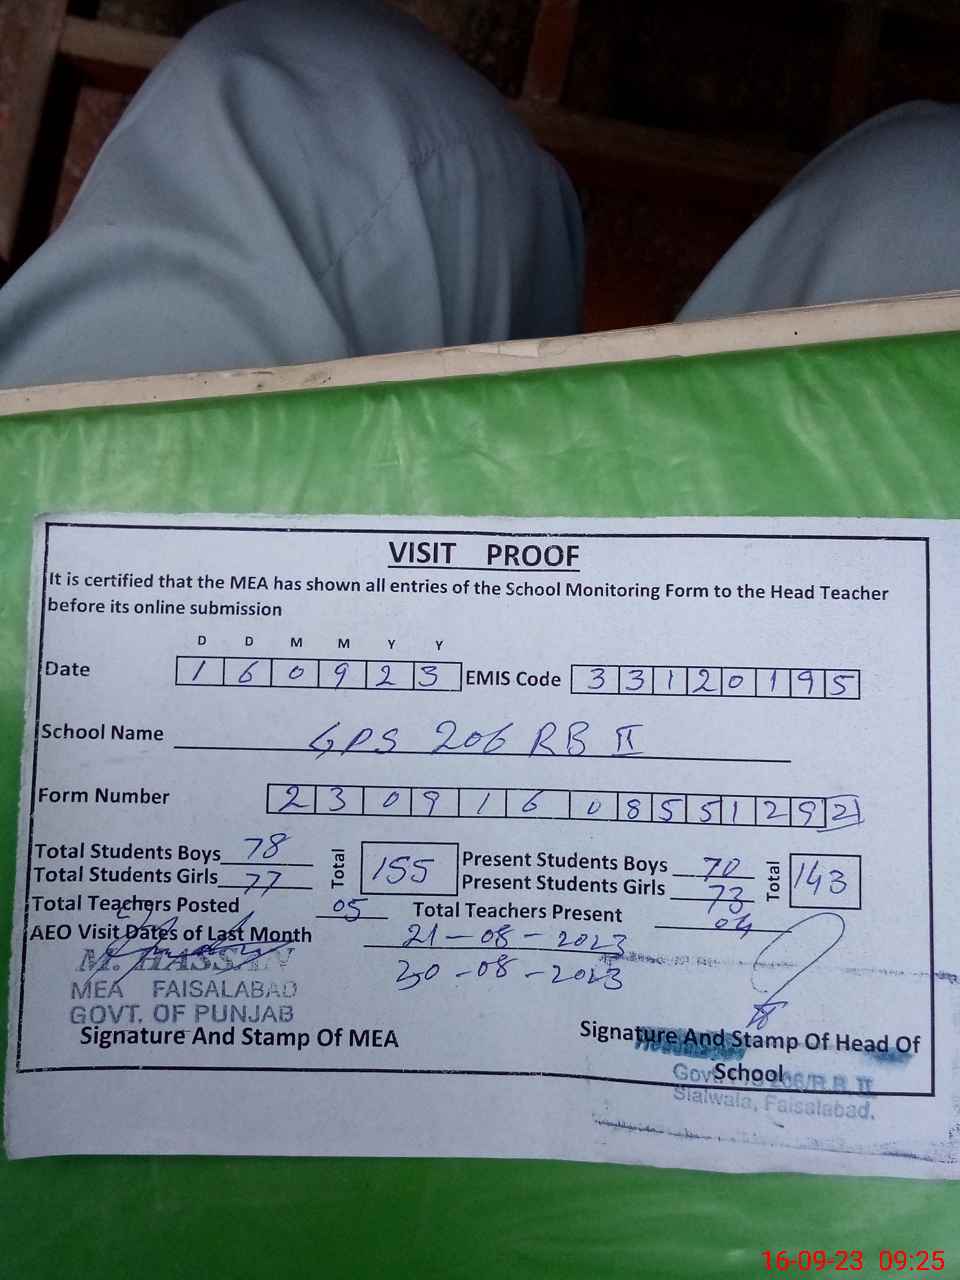 VISIT PROOF
It is certified that the MEA has shown all entries of the School Monitoring Form to the Head Teacher
before its online submission
D D M M Y Y
Date 1 6 0 9 2 3 EMIS Code 3 3 1 2 0 1 9 5
School Name GPS 206 RB II
Form Number 2 3 0 9 1 6 0 8 5 5 1 2 9 2
Total Students Boys 78 Total 155 Present Students Boys 70 Total 143
Total Students Girls 77 Present Students Girls 73
Total Teachers Posted 05 Total Teachers Present 04
AEO Visit Dates of Last Month 21-08-2023
30-08-2023
M. HASSAN
MEA FAISALABAD
GOVT. OF PUNJAB
Signature And Stamp Of MEA
Signature And Stamp Of Head Of
School
206/R.B. II
Sialwala, Faisalabad.
16-09-23 09:25